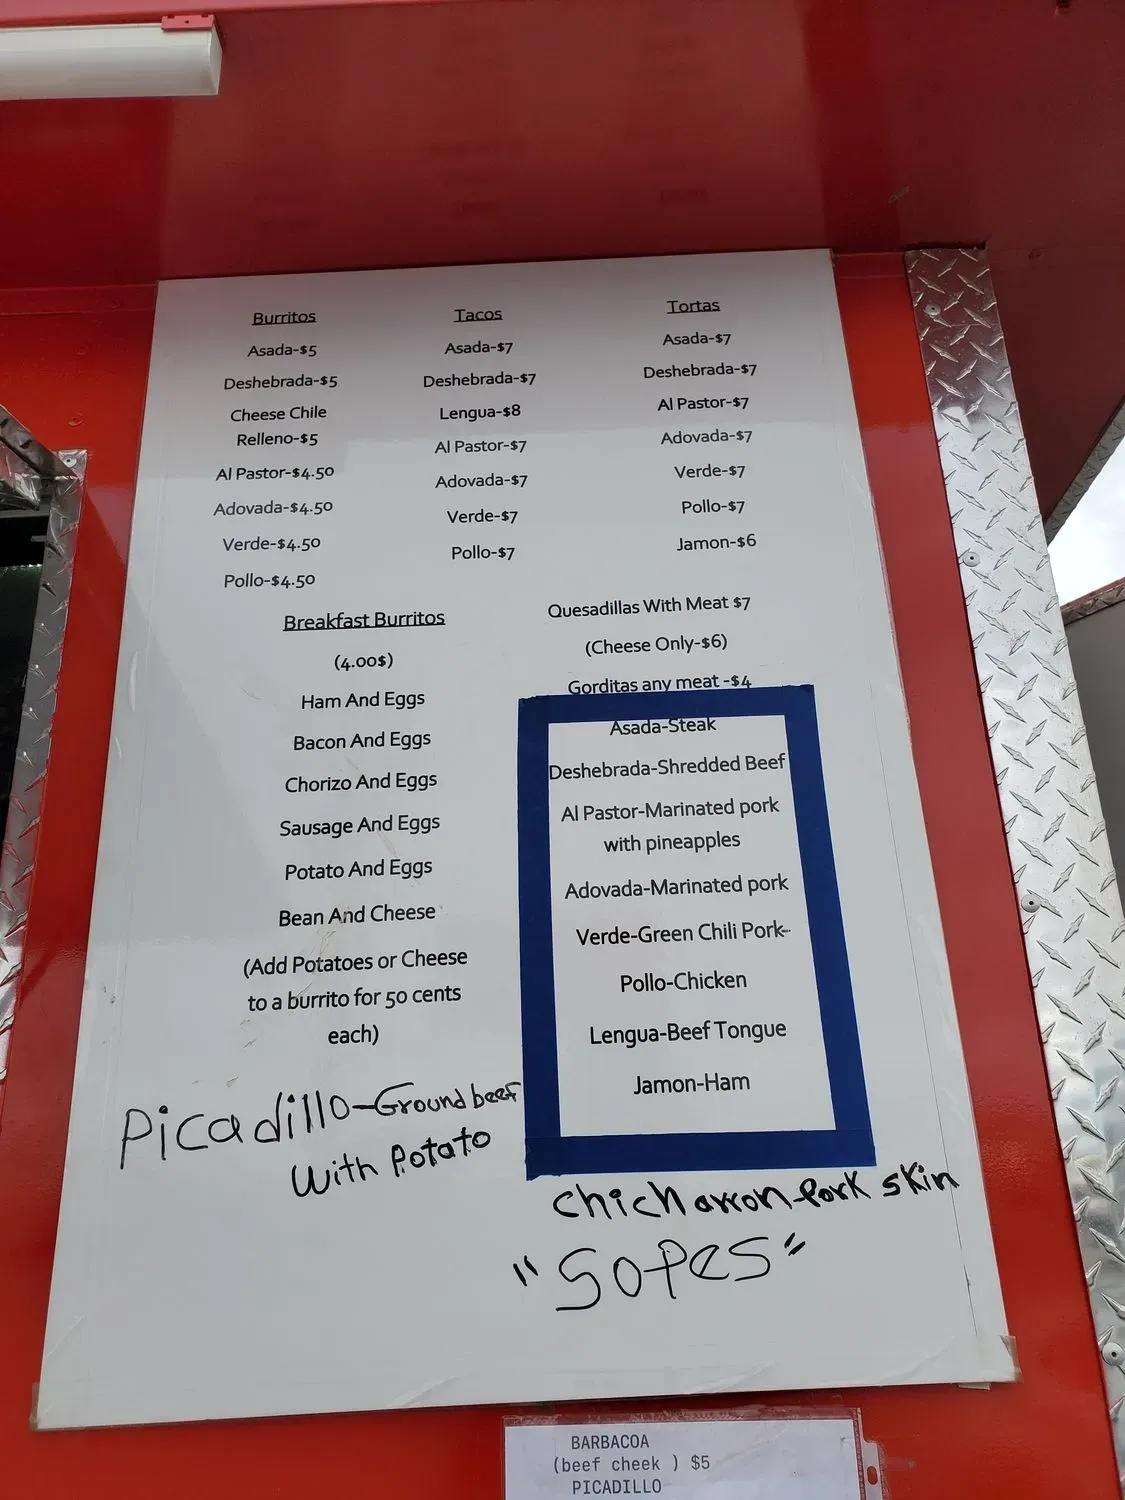 Burritos
Asada-$5
Deshebrada-$5
Cheese Chile
Relleno-$5
Al Pastor-$4.50
Adovada-$4.50
Verde-$4.50
Pollo-$4.50
Tacos
Asada-$7
Deshebrada-$7
Lengua-$8
Al Pastor-$7
Adovada-$7
Verde-$7
Pollo-$7
Tortas
Asada-$7
Deshebrada-$7
Al Pastor-$7
Adovada-$7
Verde-$7
Pollo-$7
Jamon-$6
Breakfast Burritos
(4.00$)
Ham And Eggs
Bacon And Eggs
Chorizo And Eggs
Sausage And Eggs
Potato And Eggs
Bean And Cheese
(Add Potatoes or Cheese
to a burrito for 50 cents
each)
Picadillo-Ground beef
With Potato
Quesadillas With Meat $7
(Cheese Only-$6)
Gorditas any meat -$4
Asada-Steak
Deshebrada-Shredded Beef
Al Pastor-Marinated pork
with pineapples
Adovada-Marinated pork
Verde-Green Chili Pork-
Pollo-Chicken
Lengua-Beef Tongue
Jamon-Ham
chicharron-Pork skin
"Sopes"
BARBACOA
(beef cheek ) $5
PICADILLO